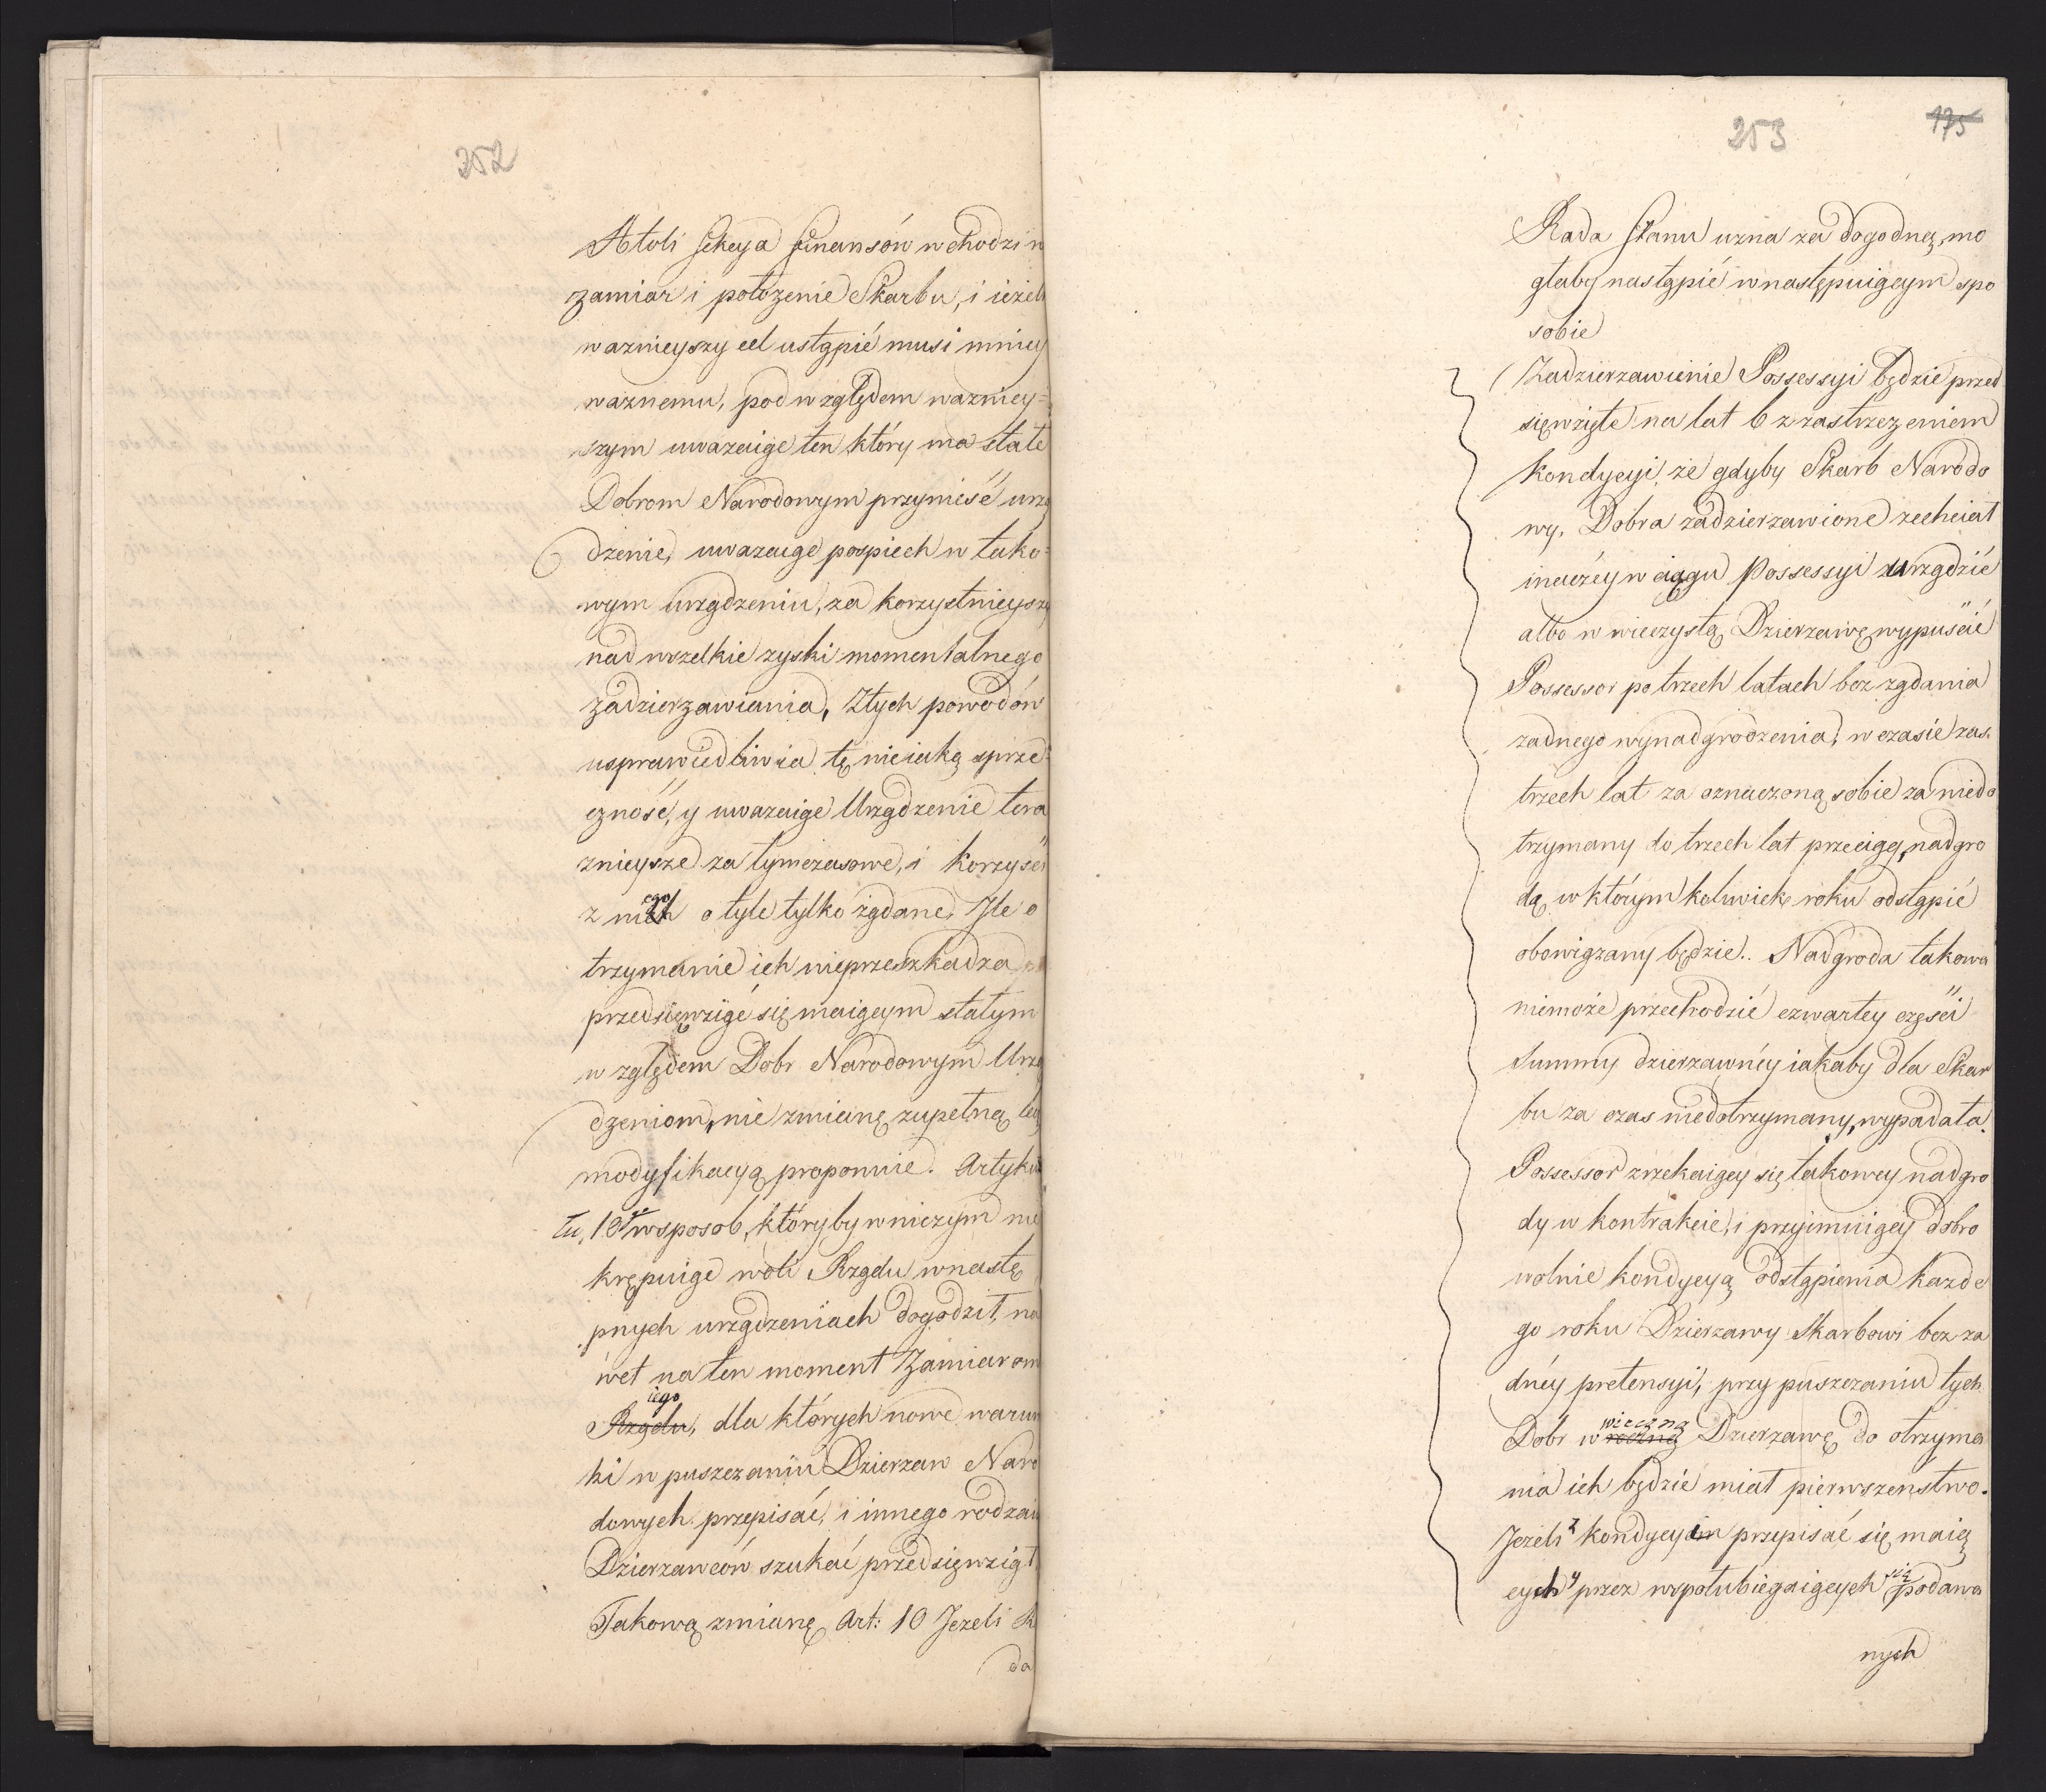 252
Atoli Sekcya Finansów wchodzi w
zamiar i położenie Skarbu, i ieżeli
ważnieyszy cel ustąpić musi mniey
ważnemu, pod względem ważniey=
szym uważaiąc ten który ma stałe
Dobrom Narodowym przynieść urzą
dzenie, uważaiąc pospiech w tako=
wym urządzeniu, za korzystnieysze
nad wszelkie zyski momentalnego
zadzierzawiania, Ztych powodów
usprawiedliwia tę nieiaką sprze=
czność, y uważaiąc Urządzenie tera
znieysze za tymczasowe, i korzyści
z niego o tyle tylko żądane, Ile o
trzymanie ich nieprzeszkadza
przedsięwziąć się maiącym stałym
względem Dobr Narodowym Urzą
dzeniom, nie zmianę zupełną lecz
modyfikacyą proponuie. Artyku
łu, 10go wsposob, któryby wniczym nie
krępuiąc woli Rządu wnastę
pnych urządzeniach dogodził, na
wet na ten moment Zamiarom
iego
Rządu, dla których nowe warun
ki w puszczaniu Dzierzaw Naro
dowych przepisać, i innego rodzaiu
Dzierzawców szukać przedsięwziął.
Takową zmianę Art: 10 Jezeli Ra
da
253
175
Rada Stanu uzna za dogodną, mo
głaby nastąpić wnastępuiącym spo
sobie
Zadzierzawienie Possessyi będzie przed
sięwzięte na lat 6 z zastrzeżeniem
kondycyi, że gdyby Skarb Narodo
wy, Dobra zadzierzawione zechciał
inaczéy w ciągu Possessyi urządzić
albo w wieczystą Dzierzawę wypuścić
Possessor po trzech latach bez żądania
zadnego wynadgrodzenia, w czasie zas
trzech lat za oznaczoną sobie za niedo
trzymany do trzech lat przeciąg, nadgro
dą w którym kolwiek roku odstąpić
obowiązany będzie.. Nadgroda takowa
niemoże przechodzić czwartey części
Summy dzierzawnéy iakaby dla Skar
bu za czas niedotrzymany, wypadała.
Possessor zrzekaiący się takowey nadgro
dy w kontrakcie, i przyimuiący dobro
wolnie kondycyą odstąpienia kazde
go roku Dzierzawy Skarbowi bez za
dnéy pretensyi, przy puszczaniu tych
wieczną
Dobr w roczną Dzierzawę do otrzyma
nia ich będzie miał pierwszenstwo.
Jezeli z kondycyi przepisać się maią
cych y przez wspołubiegaiących się podawa
nych